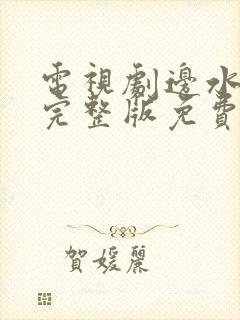 電視劇邊水
完整版免費
賀媛麗